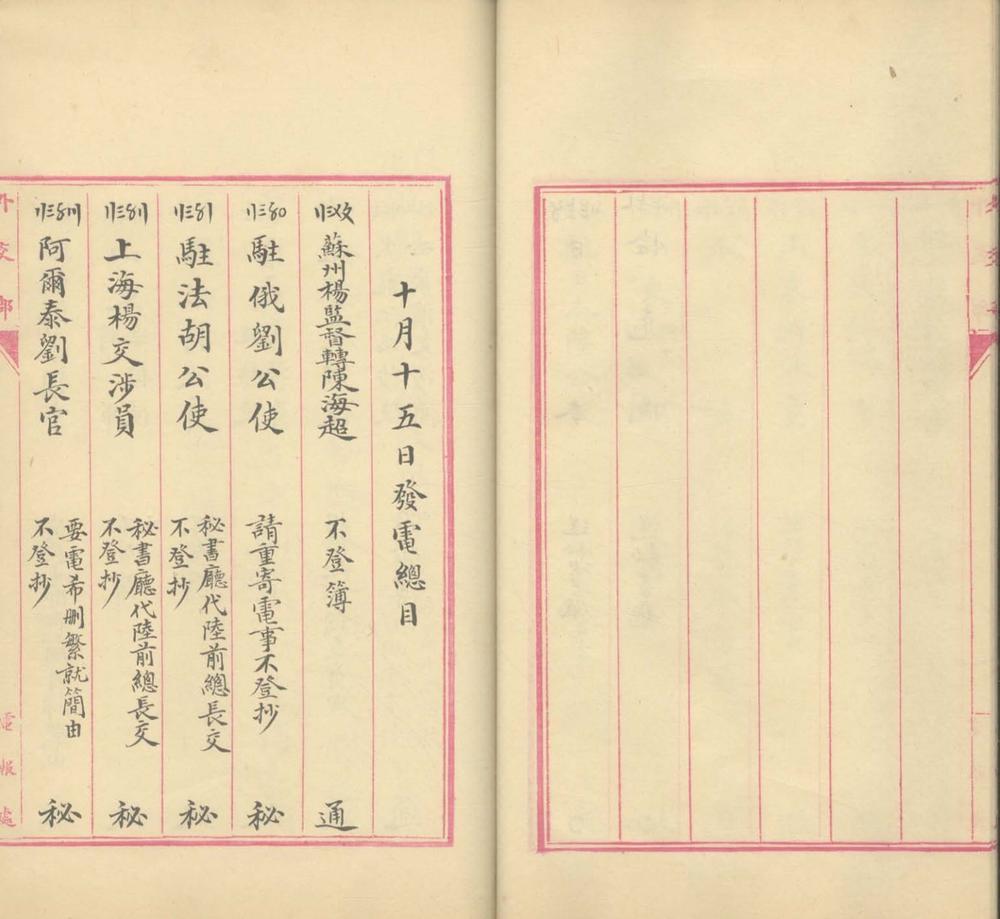 十月十五日發電總目
蘇州楊監督轉陳海超 不登簿 通
駐俄劉公使 請重寄電事不登抄 秘
駐法胡公使 秘書廳代陸前總長交 不登抄 秘
上海楊交涉員 秘書廳代陸前總長交 不登抄 秘
阿爾泰劉長官 要電希刪繁就簡由 不登抄 秘
外交部
電報處